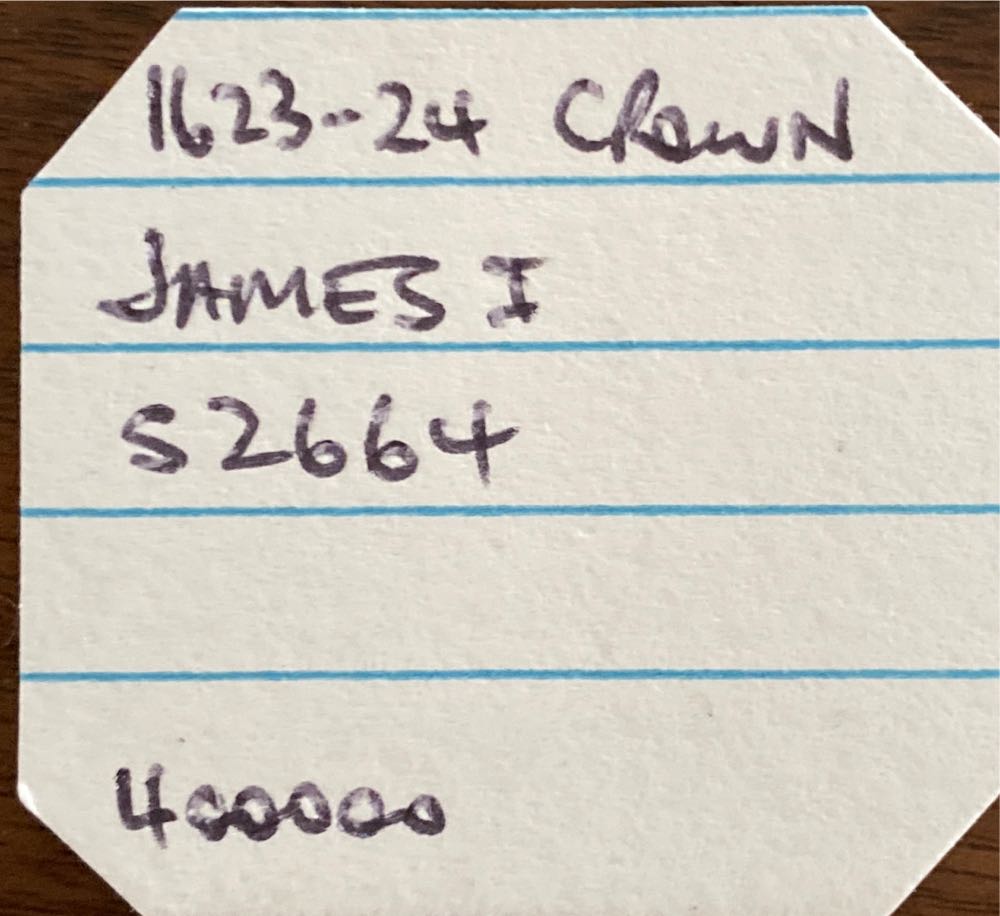 1623--24 CROWN
JAMES I
S2664
400000